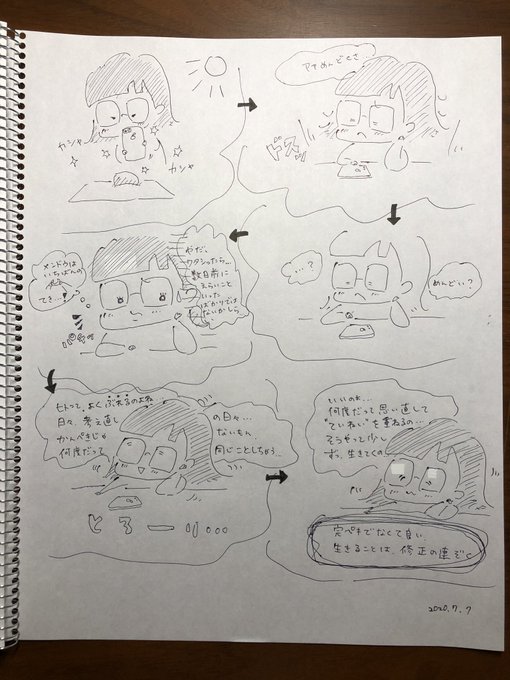 カシャ
カシャ
アァめんどくさ
ドスッ
…?
めんどい?
やだ、
ワタシったら…
数日前に
えらいこと
いった
ばかりでは
ないかしら
メンドウは
いちばんの
てき…
パチッ
ヒトって、よくぶれるのよね
日々、考え直し
かんぺきじゃ
何度だって
の日々…
ないもん
同じことしちゃう…
とろーり。。。
いいのぉ…
何度だって思い直して
"ていねい"を重ねるの…
そうやって少し
ずつ、生きてくの
完ペキでなくて良い。
生きることは、修正の連ぞく
2020.7.7